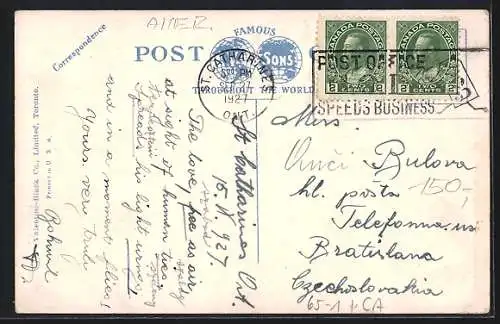 AMER.
Correspondence
FAMOUS
POST
SONS
THROUGHOUT THE WORLD
ST. CATHARINES
PM
1927
ONT.
CANADA POSTAGE
2 CENTS 2
CANADA POSTAGE
2 CENTS 2
POST OFFICE
SPEEDS BUSINESS
St Catharines Ont.
15. V. 927.
The love, free as air,
at sight of human ties
Spreads his light wings
and in a moment flies!
Yours very truly
Valentine-Black Co., Limited, Toronto.
Printed in U. S. A.
Miss
Bulova
150,-
hl. pošta
Telefonna
Bratislava
Czechoslovakia
65-1 + CA